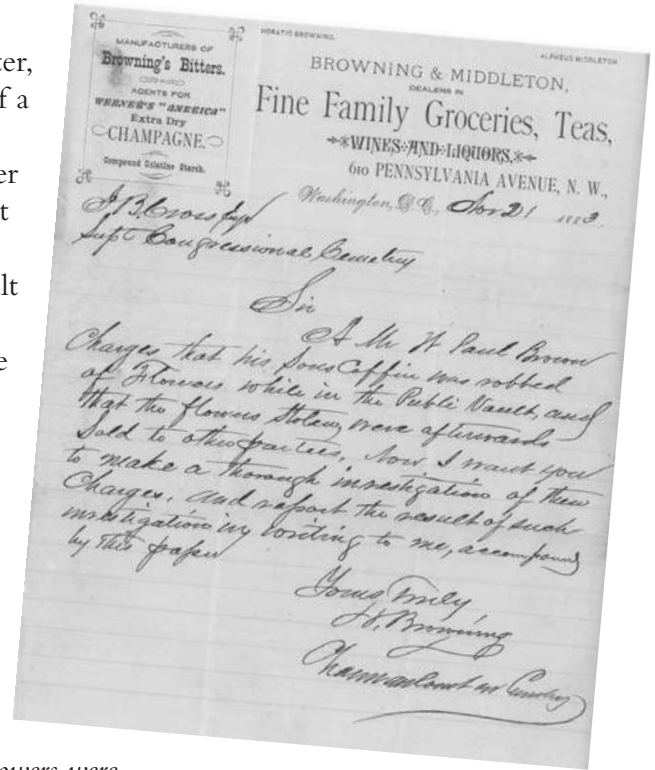 er,
f a
er
t
lt
e
HORATIO BROWNING.
ALPHEUS MIDDLETON
MANUFACTURERS OF
Browning's Bitters.
AGENTS FOR
WERNER'S "AMERICA"
Extra Dry
CHAMPAGNE.
Compound Cristine Starch.
BROWNING & MIDDLETON,
DEALERS IN
Fine Family Groceries, Teas,
WINES AND LIQUORS.
610 PENNSYLVANIA AVENUE, N. W.,
Washington, D. C., Nov 21 1883
Supt Congressional Cemetery
Sir
A Mr W Paul Brown
Charges that his Sons Coffin was robbed
of Flowers while in the Public Vault, and
that the flowers Stolen were afterwards
Sold to other parties. Now I want you
to make a thorough investigation of these
Charges, and report the result of such
investigation in writing to me, accompanied
by this paper
Yours Truly,
H. Browning
Chairman
owers were